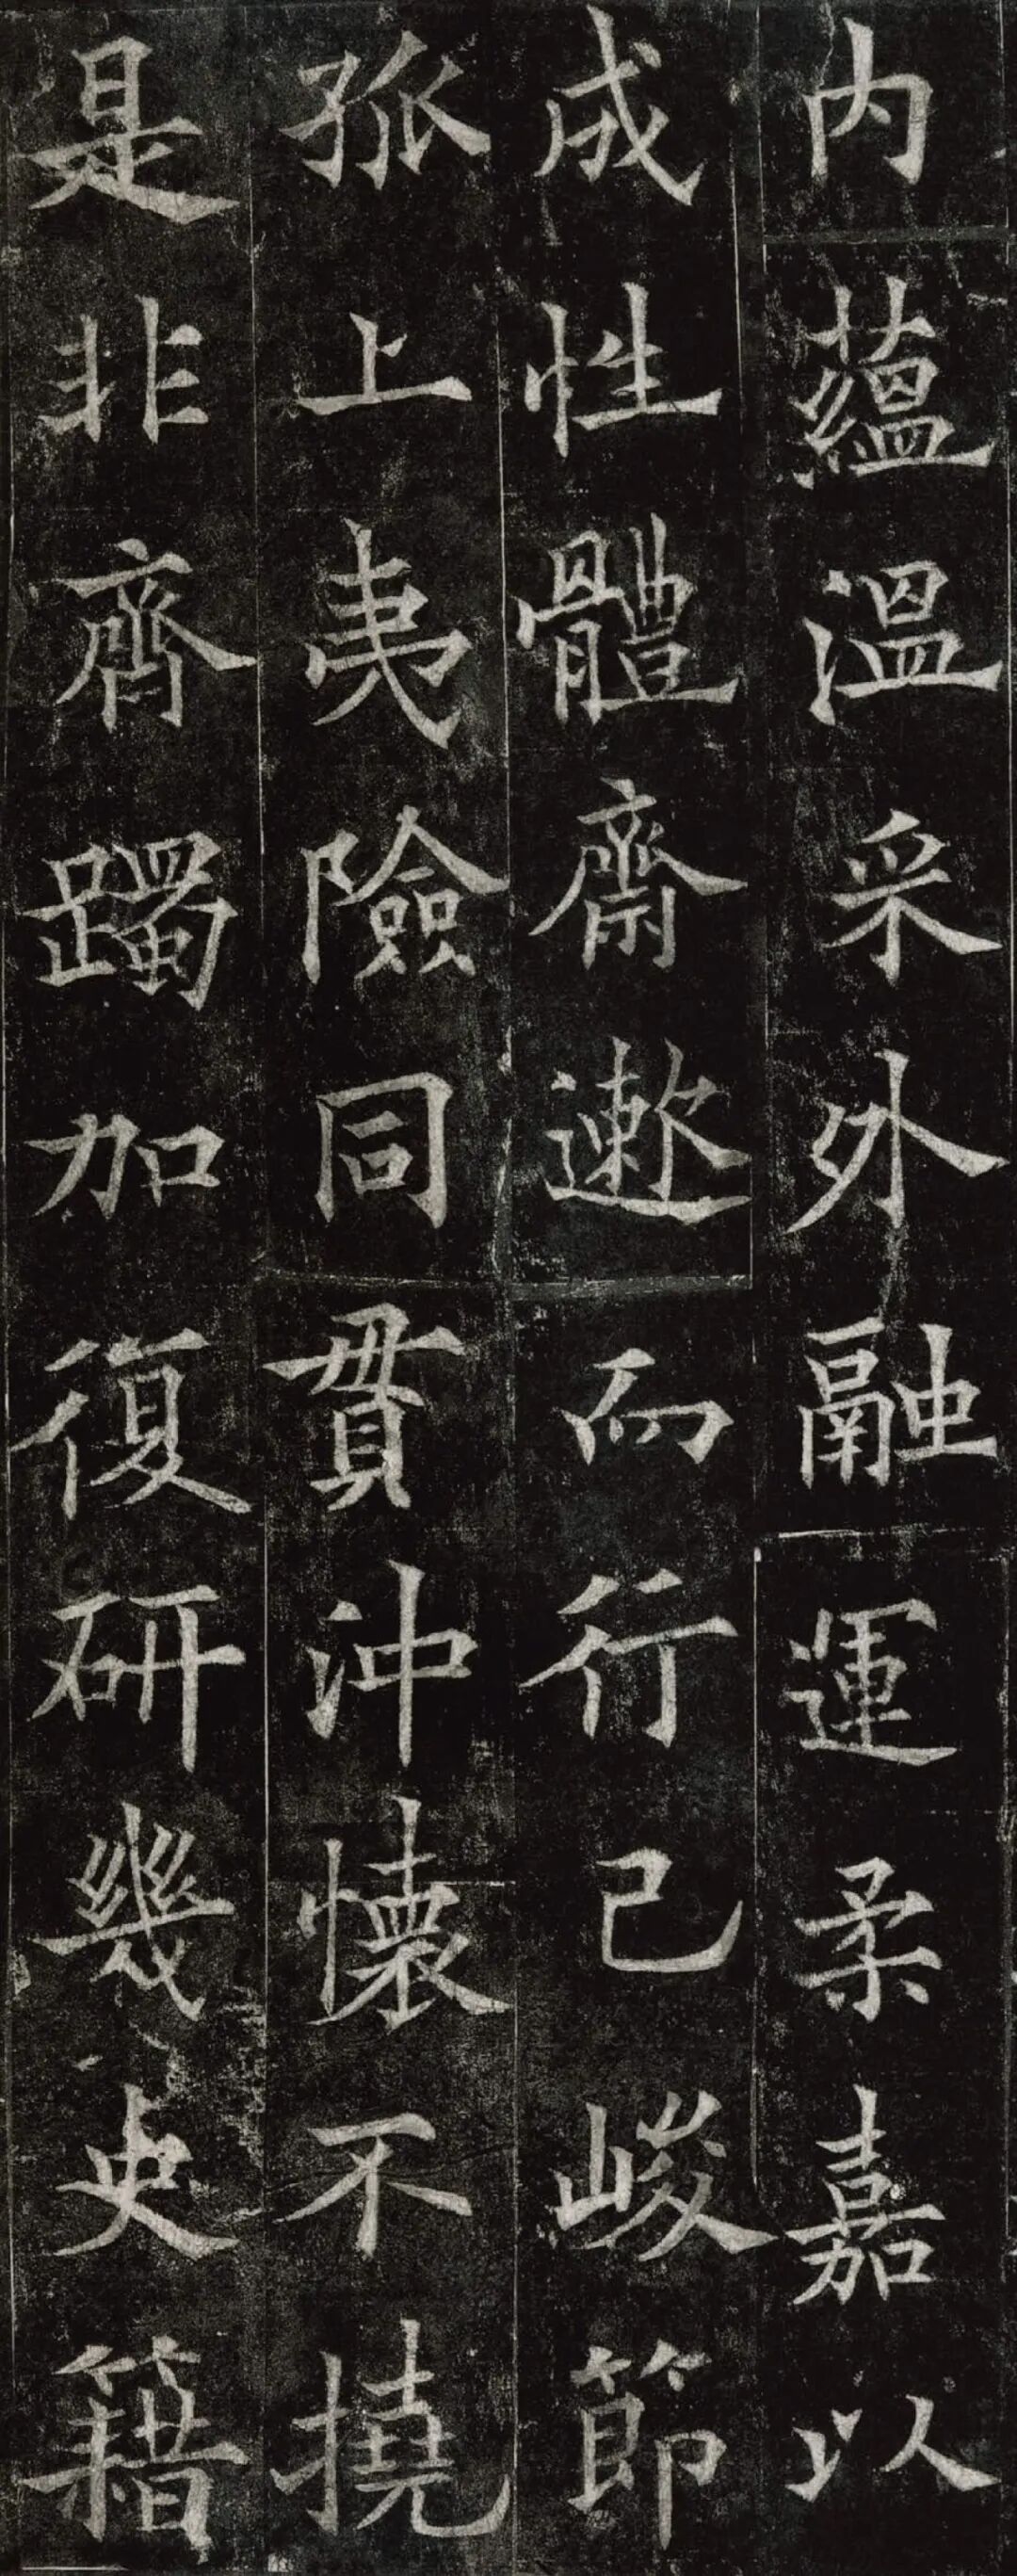 内蘊溫采外融運柔嘉以
成性體齋遬而行己峻節
孤上夷險同貫沖懷不撓
是非齊躅加復研幾史籍